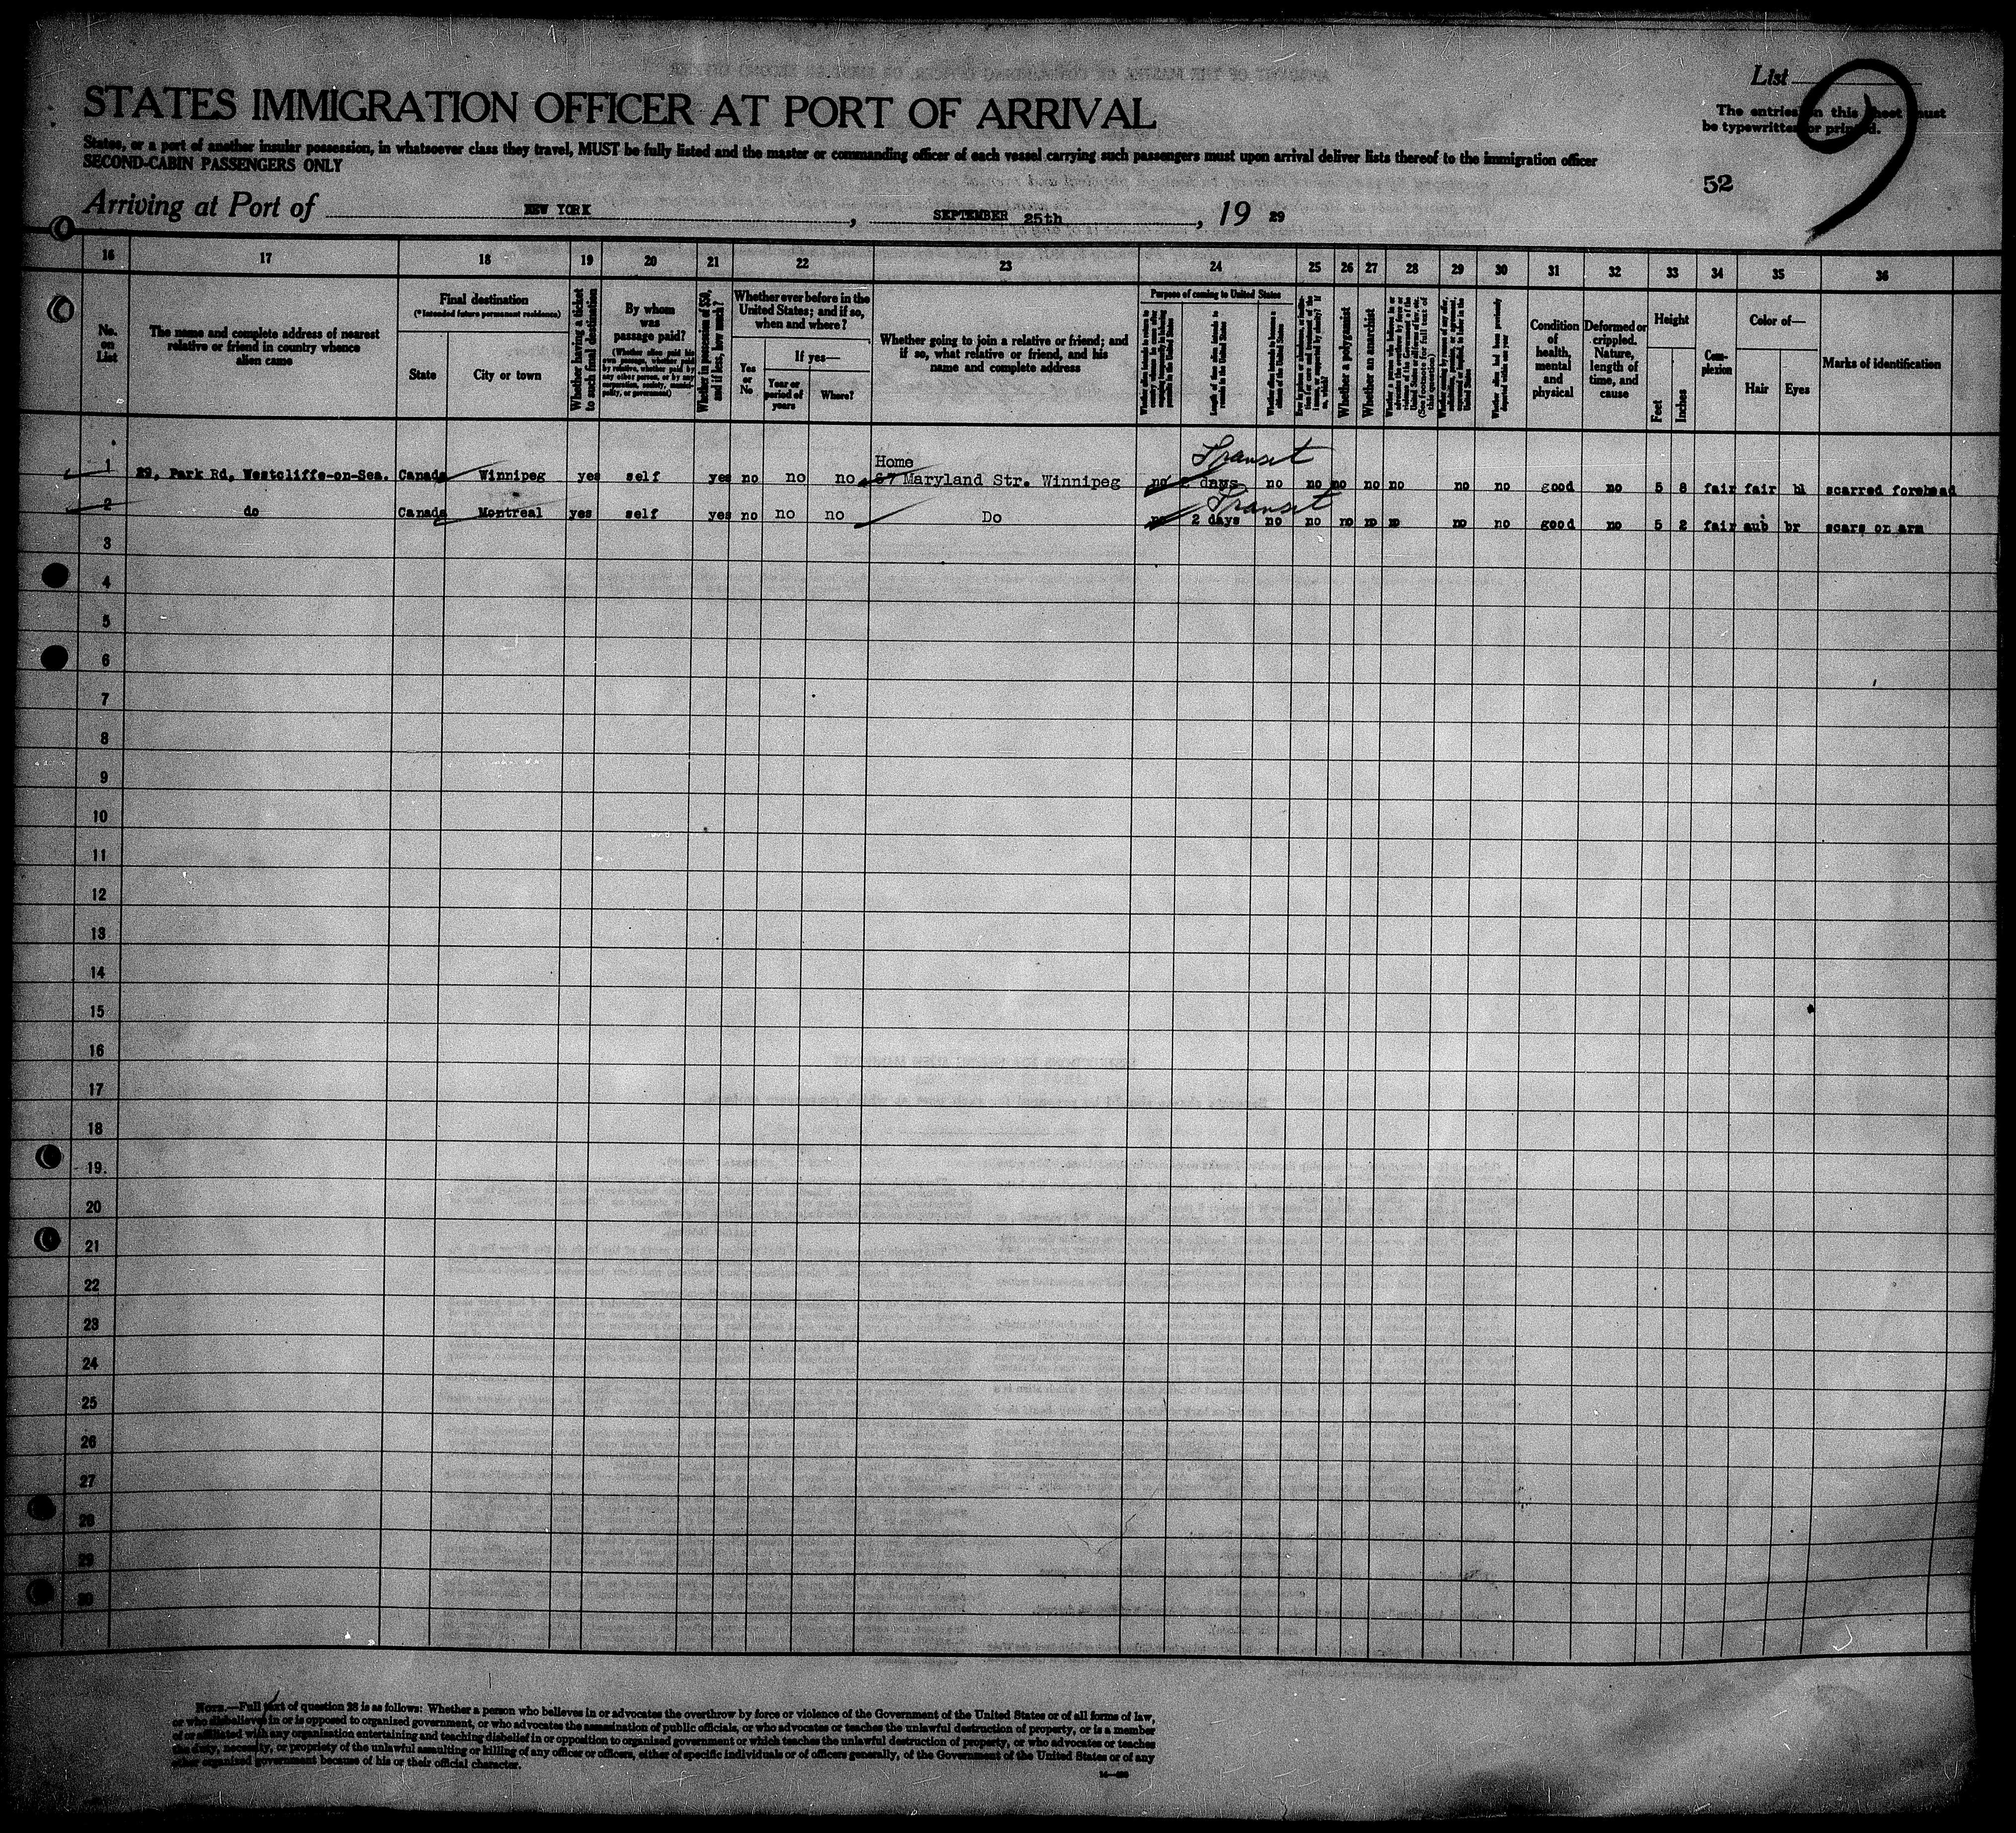 List 9
STATES IMMIGRATION OFFICER AT PORT OF ARRIVAL
The entries on this sheet must
be typewritten or printed.
States, or a port of another insular possession, in whatsoever class they travel, MUST be fully listed and the master or commanding officer of each vessel carrying such passengers must upon arrival deliver lists thereof to the immigration officer
SECOND-CABIN PASSENGERS ONLY
52
Arriving at Port of NEW YORK, SEPTEMBER 25th, 19 29
16 17 18 19 20 21 22 23 24 25 26 27 28 29 30 31 32 33 34 35 36
No. on List
The name and complete address of nearest relative or friend in country whence alien came
Final destination
(*Intended future permanent residence)
State
City or town
Whether having a ticket to such final destination
By whom was passage paid?
(Whether alien paid his own passage, whether paid by relative, whether paid by any other person, or by any corporation, society, municipality, or government)
Whether in possession of $50, and if less, how much?
Whether ever before in the United States; and if so, when and where?
Yes or No
If yes—
Year or period of years
Where?
Whether going to join a relative or friend; and if so, what relative or friend, and his name and complete address
Purpose of coming to United States
Length of time alien intends to remain in the United States
Whether alien intends to become a citizen of the United States
Whether a polygamist
Whether an anarchist
(See footnote for full text of this question)
Whether alien had been previously deported within one year
Condition of health, mental and physical
Deformed or crippled. Nature, length of time, and cause
Height
Feet
Inches
Complexion
Color of—
Hair
Eyes
Marks of identification
Transit
Home
1 29, Park Rd, Westcliffe-on-Sea. Canada Winnipeg yes self yes no no no 67 Maryland Str. Winnipeg no 2 days no no no no no no no good no 5 8 fair fair bl scarred forehead
Transit
2 do Canada Montreal yes self yes no no no Do no 2 days no no no no no no no good no 5 2 fair aub br scars on arm
3
4
5
6
7
8
9
10
11
12
13
14
15
16
17
18
19
20
21
22
23
24
25
26
27
28
29
30
NOTE.—Full text of question 28 is as follows: Whether a person who believes in or advocates the overthrow by force or violence of the Government of the United States or of all forms of law,
or who disbelieves in or is opposed to organized government, or who advocates the assassination of public officials, or who advocates or teaches the unlawful destruction of property, or is a member
of or affiliated with any organization entertaining and teaching disbelief in or opposition to organized government or which teaches the unlawful destruction of property, or who advocates or teaches
the duty, necessity, or propriety of the unlawful assaulting or killing of any officer or officers, either of specific individuals or of officers generally, of the Government of the United States or of any
other organized government because of his or their official character.